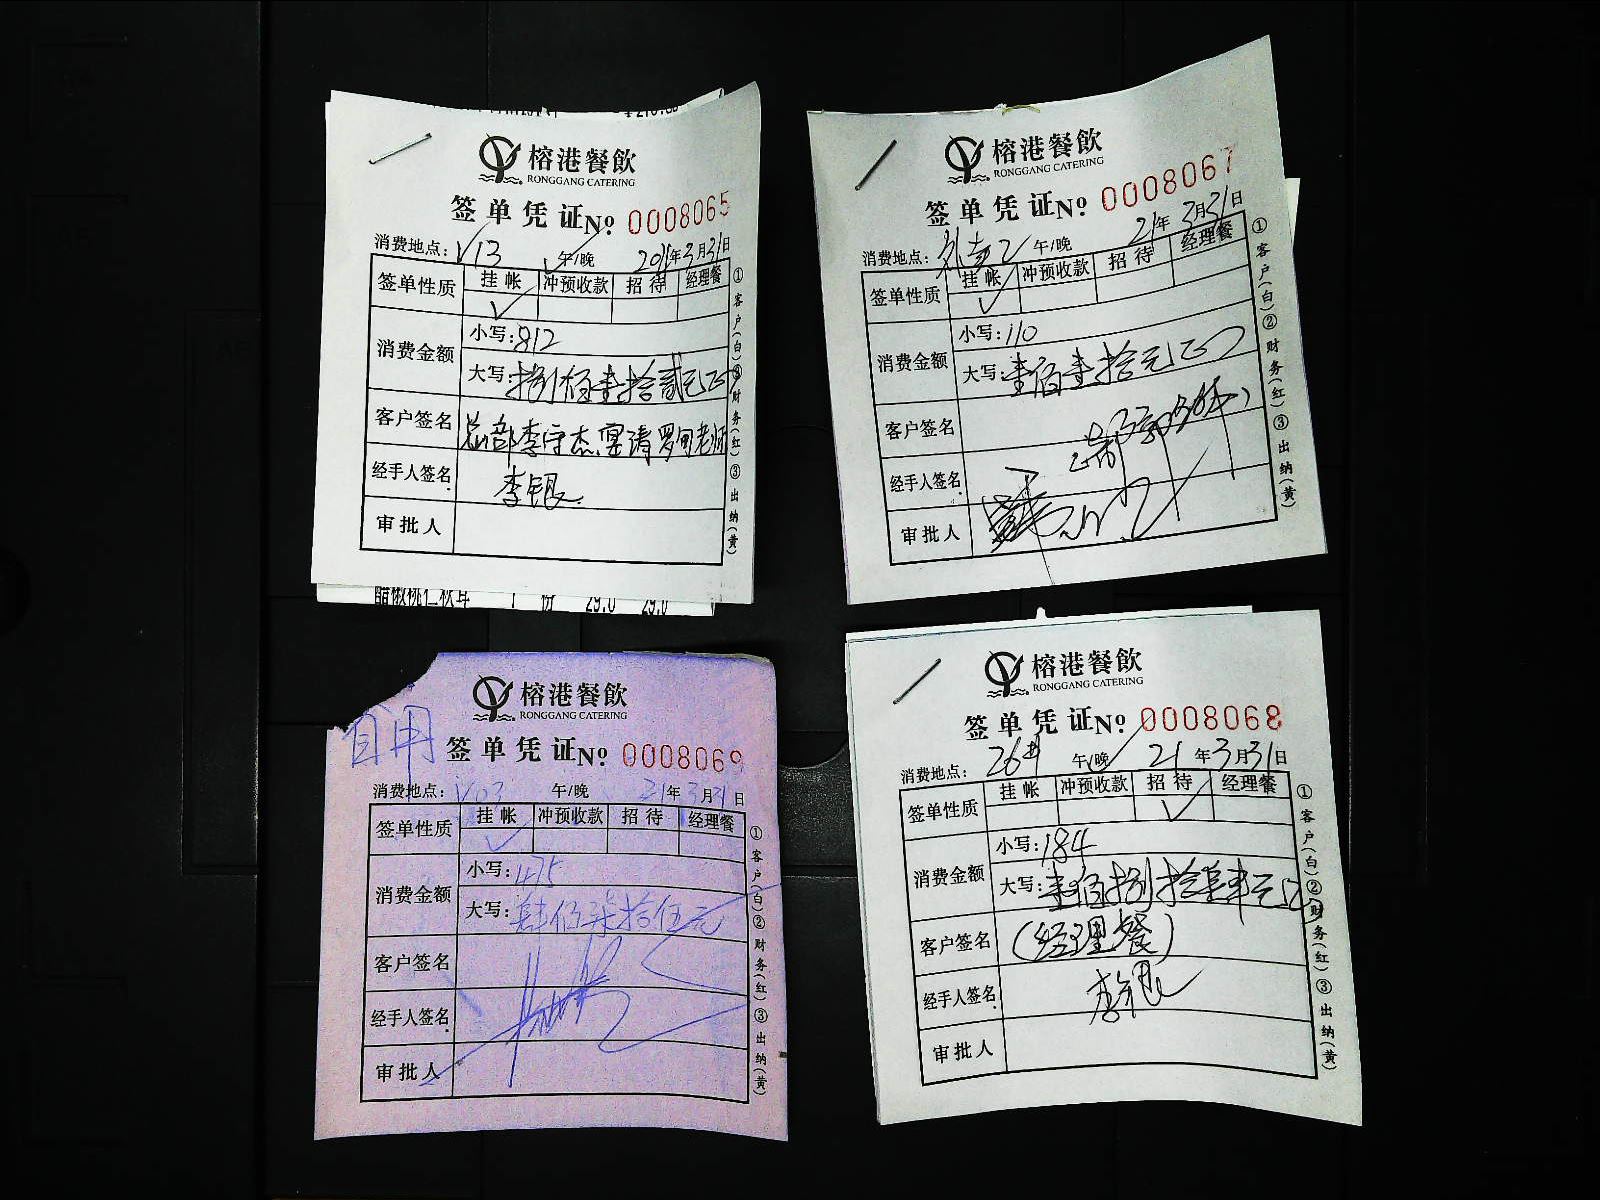 榕港餐飲
RONGGANG CATERING
签单凭证 No 0008065
消费地点: V13 午/晚 2021年3月31日
签单性质 挂帐 冲预收款 招待 经理餐
消费金额 小写: 812
大写: 捌佰壹拾贰元正
客户签名 总部李守杰宴请罗甸老师
经手人签名 李银
审批人
①客户(白)②财务(红)③出纳(黄)
醋椒桃仁秋耳 1 份 29.0 29.0
榕港餐飲
RONGGANG CATERING
签单凭证 No 0008067
消费地点: 午/晚 21年3月31日
签单性质 挂帐 冲预收款 招待 经理餐
消费金额 小写: 110
大写: 壹佰壹拾元正
客户签名
经手人签名
审批人
①客户(白)②财务(红)③出纳(黄)
自用
榕港餐飲
RONGGANG CATERING
签单凭证 No 0008069
消费地点: V03 午/晚 21年3月31日
签单性质 挂帐 冲预收款 招待 经理餐
消费金额 小写: 475
大写: 肆佰柒拾伍元
客户签名
经手人签名
审批人
①客户(白)②财务(红)③出纳(黄)
榕港餐飲
RONGGANG CATERING
签单凭证 No 0008068
消费地点: 午/晚 21年3月31日
签单性质 挂帐 冲预收款 招待 经理餐
消费金额 小写: 184
大写: 壹佰捌拾肆元正
客户签名 (经理餐)
经手人签名 李银
审批人
①客户(白)②财务(红)③出纳(黄)